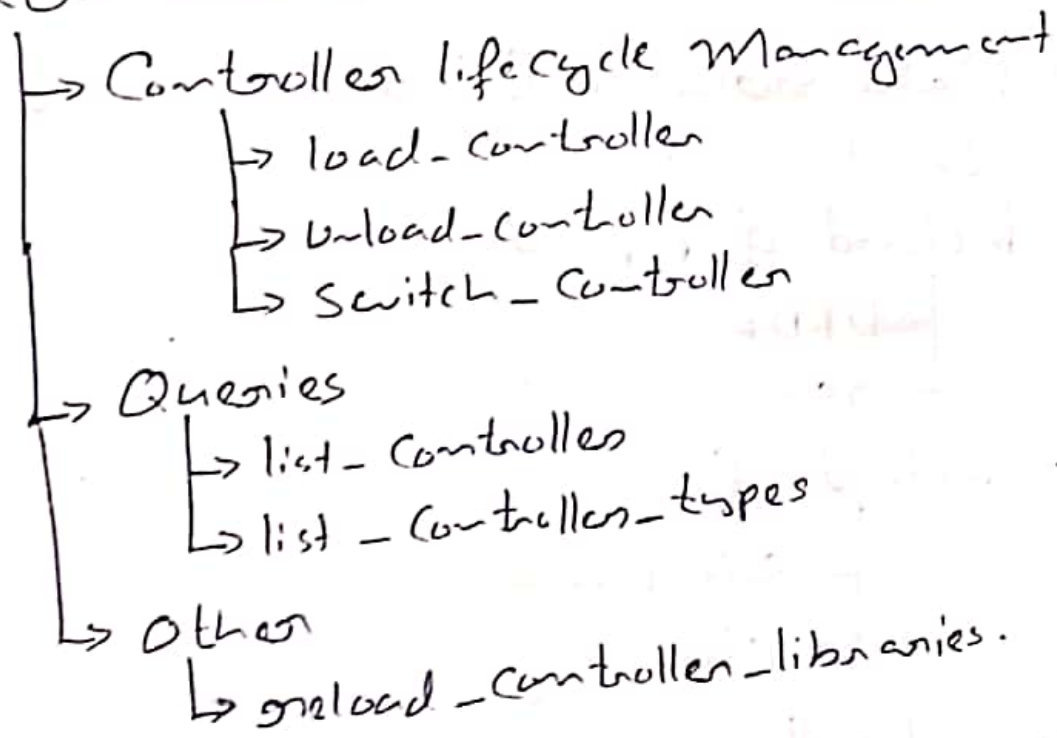 Controller lifecycle Management
load_controller
unload_controller
Switch_Controller
Queries
list_Controller
list_Controller_types
Other
reload_controller_libraries.